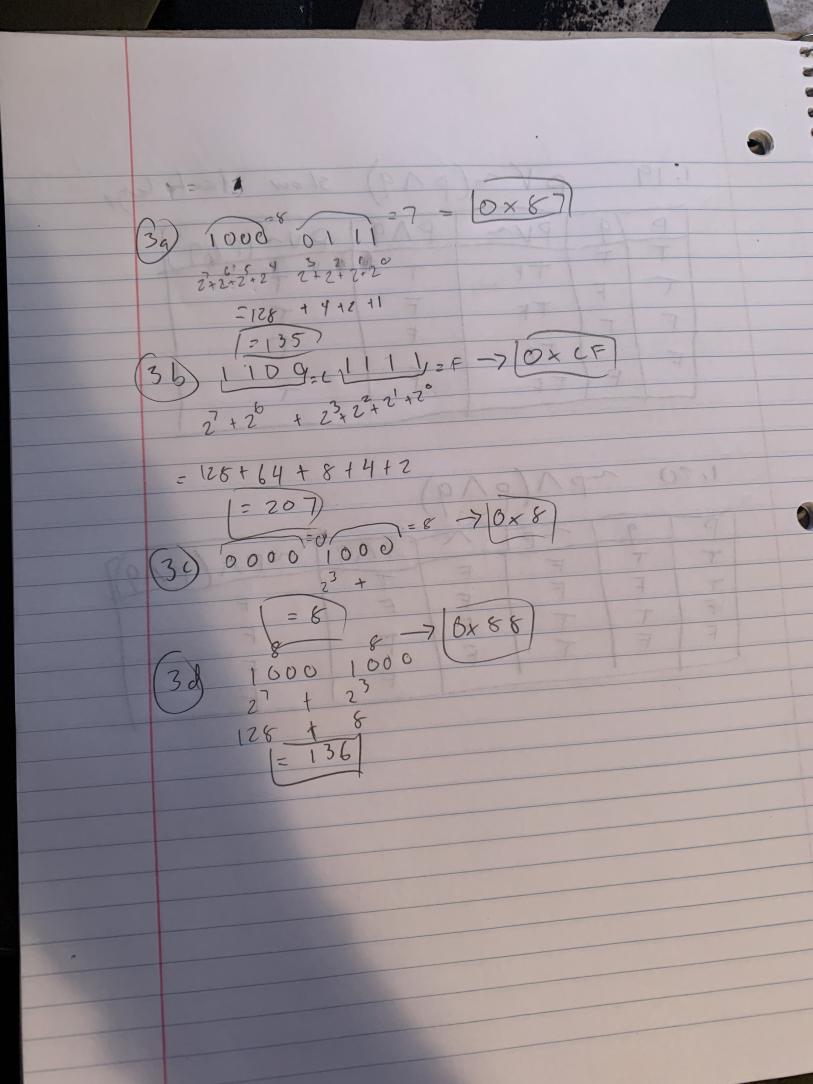 3a 1000 =8 0111 =7 = 0x87
2⁷+2⁶+2⁵+2⁴ 2³+2²+2¹+2⁰
=128 + 4+2+1
=135
3b 1100 =C 1111 =F → 0xCF
2⁷+2⁶ + 2³+2²+2¹+2⁰
= 128+64+8+4+2
= 207
3c 0000 =0 1000 =8 → 0x8
2³ +
= 8
8 8 → 0x88
3d 1000 1000
2⁷ + 2³
128 + 8
= 136